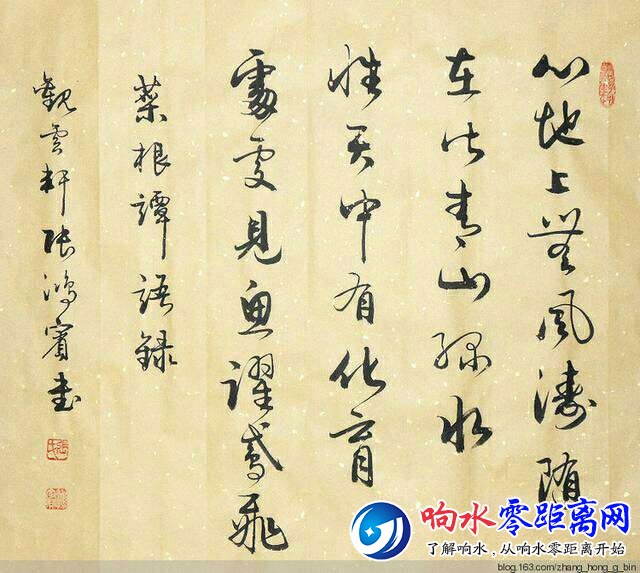 心地上無風濤随
在皆青山綠水
性天中有化育
處處見魚躍鳶飛
菜根譚語錄
觀雲軒張鴻賓書
响水零距离网
了解响水，从响水零距离开始
blog.163.com/zhang_hong_g_bin